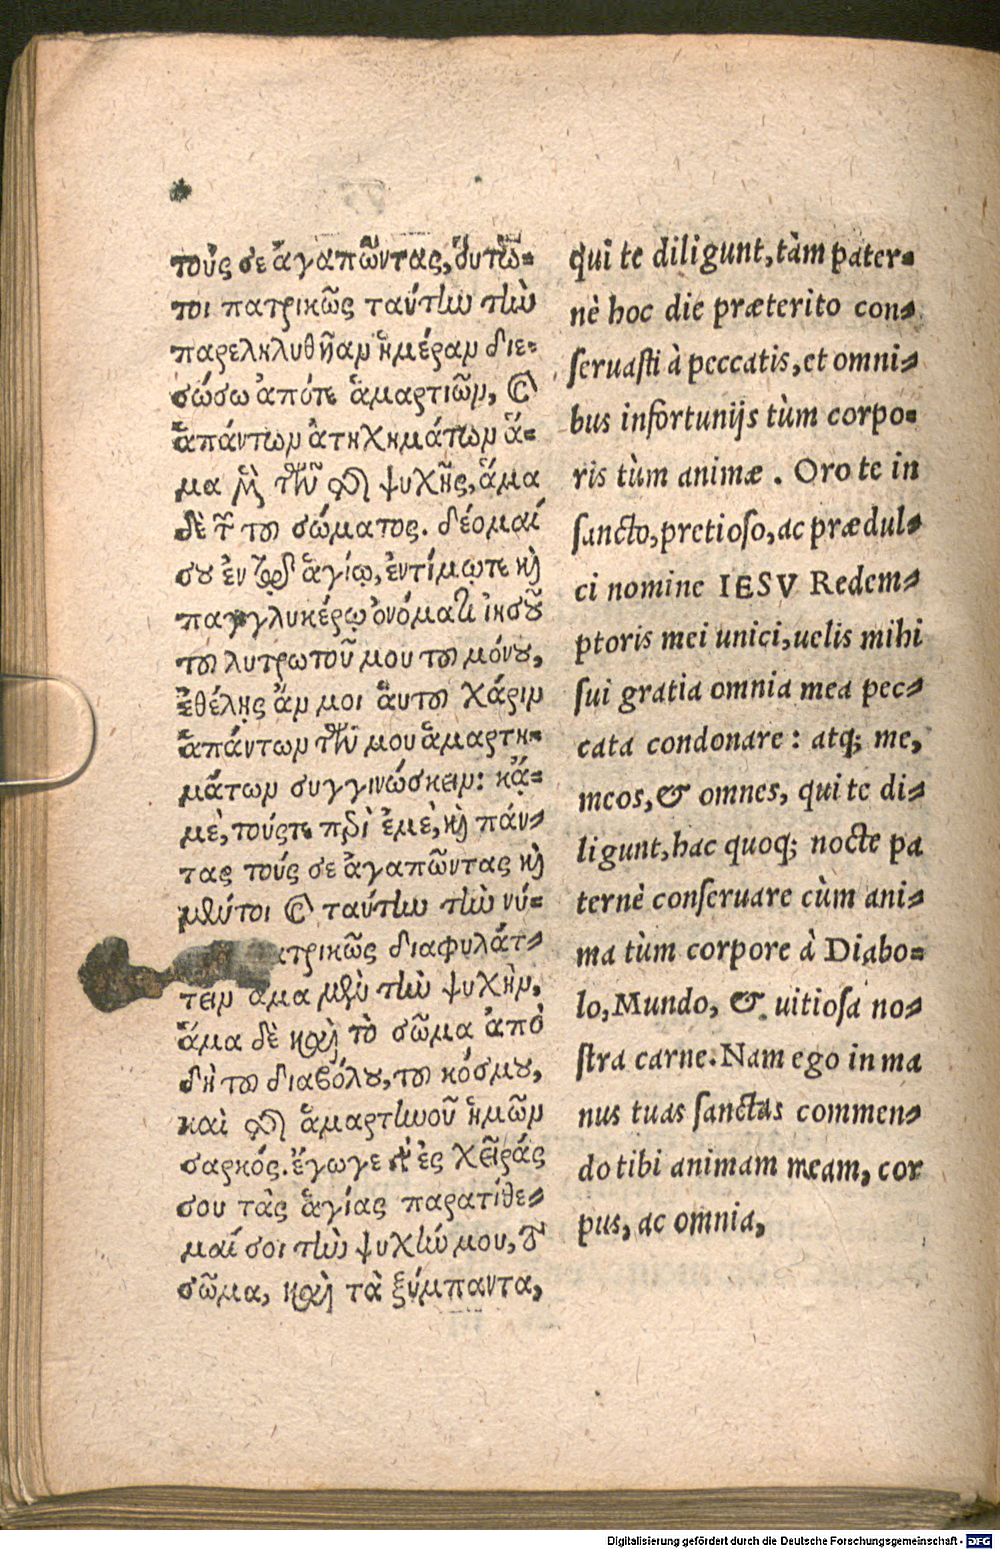 τοὺς σε ἀγαπῶντας, ὅυτω-
τοι πατρικῶς ταύτην τὴν
παρεληλυθῆαν ἡμέραν διε-
σώσω ἀπότε ἁμαρτιῶν, καὶ
ἁπάντων ἀτηχημάτων ἅ-
μα μὲν τῶν τῆς ψυχῆς, ἅμα
δὲ τῶν του σώματος. δέομαί
σου ἐν ἁγίῳ, ἐντίμῳτε καὶ
παγγλυκέρῳ ὀνόματι ἰησοῦ
του λυτρωτοῦ μου του μόνου,
ἐθέλῃς ἄν μοι ἁυτου χάριν
ἁπάντων τῶν μου ἁμαρτη-
μάτων συγγινώσκειν: κᾄ-
μὲ, τούστε περὶ ἐμὲ, καὶ πάν-
τας τούς σε ἀγαπῶντας καὶ
μέντοι καὶ ταύτην τὴν νύ-
τρικῶς διαφυλάτ-
τειν ἅμα μὲν τὴν ψυχὴν,
ἅμα δὲ καὶ τὸ σῶμα ἀπὸ
δὴ του διαβόλου, του κόσμου,
καὶ τῆς ἁμαρτηνοῦ ἡμῶν
σαρκός. ἔγωγε γὰρ ἐς χεῖράς
σου τὰς ἁγίας παρατίθε-
μαί σοι τὴν ψυχήν μου, τὸ
σῶμα, καὶ τὰ ξύμπαντα,
qui te diligunt, tàm pater-
nè hoc die præterito con-
seruasti à peccatis, et omni-
bus infortunijs tùm corpo-
ris tùm animæ. Oro te in
sancto, pretioso, ac prædul-
ci nomine IESV Redem-
ptoris mei unici, uelis mihi
sui gratia omnia mea pec-
cata condonare: atq; me,
meos, & omnes, qui te di-
ligunt, hac quoq; nocte pa
ternè conseruare cùm ani-
ma tùm corpore à Diabo-
lo, Mundo, & uitiosa no-
stra carne. Nam ego in ma
nus tuas sanctas commen-
do tibi animam meam, cor
pus, ac omnia,
Digitalisierung gefördert durch die Deutsche Forschungsgemeinschaft - DFG